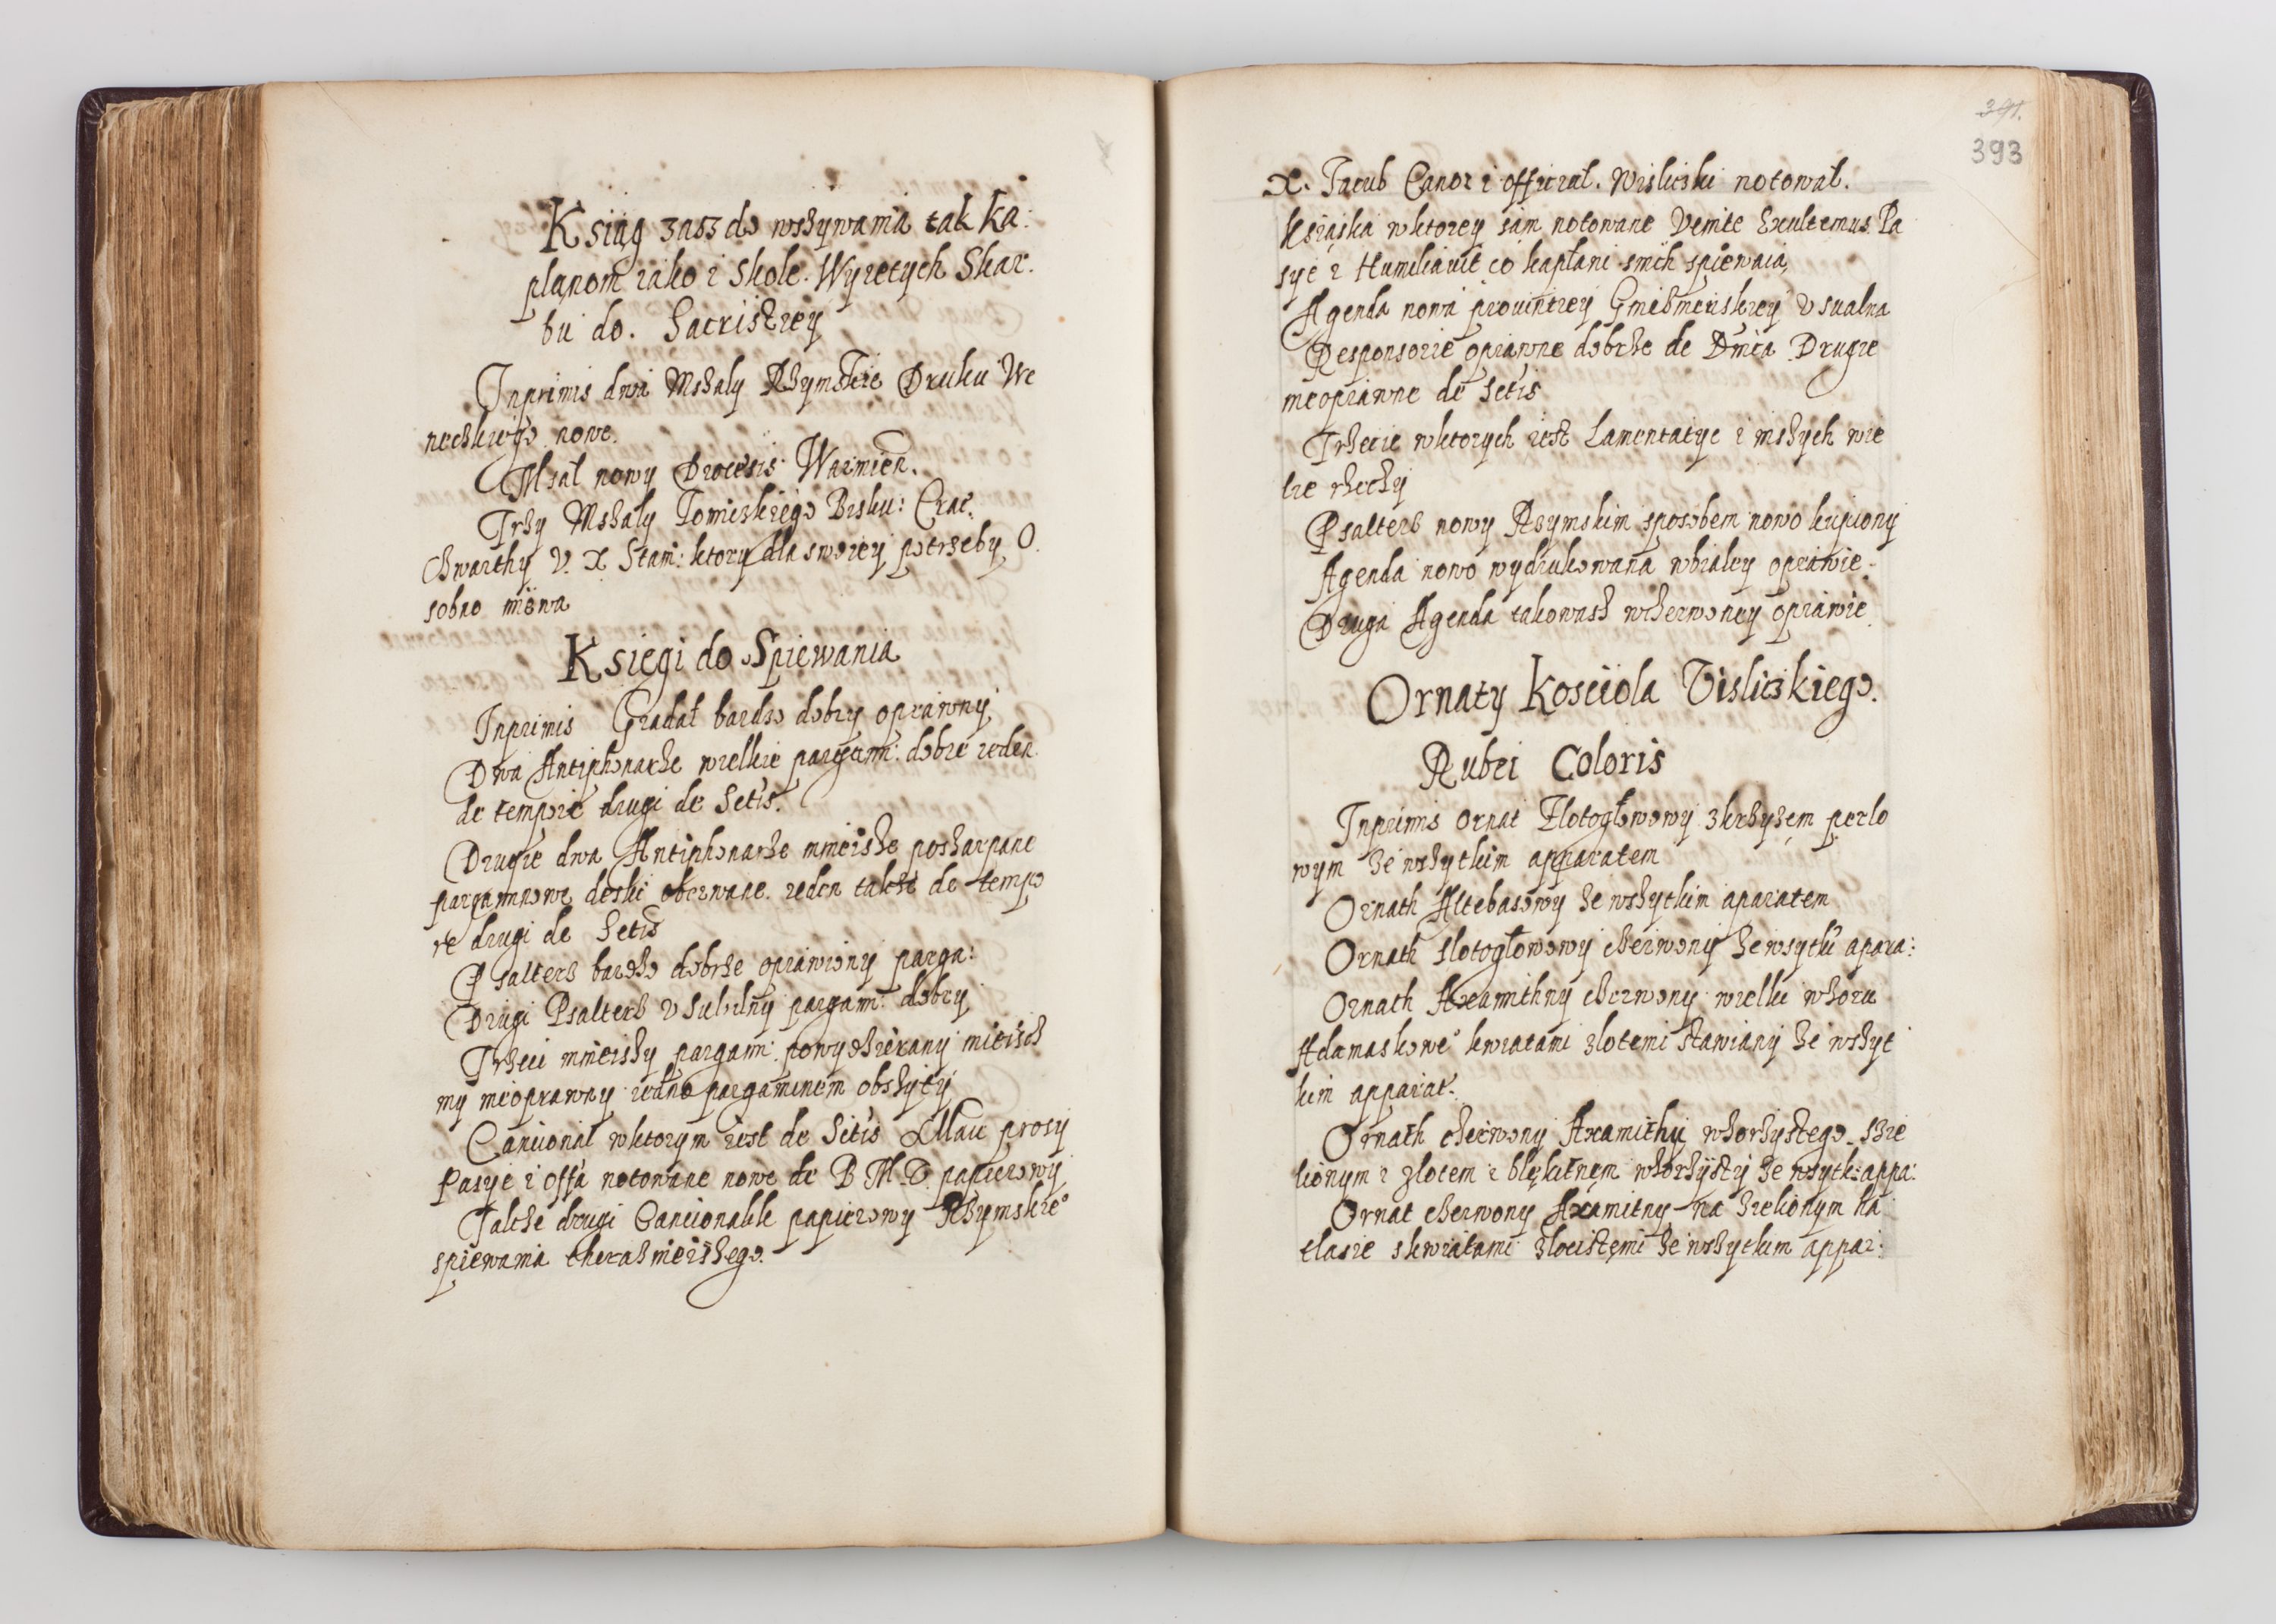 Ksiąg zasz do wszywania tak ka:
planom iako i Skole. Wyietych Skar.
bu do. Sacristiey
Inprimis dwa Mszaly Rzymskie Druku We
neckiego nowe.
Mszal nowy Diocesis Warmien.
Trzy Mszaly Tomickiego Bisku: Crac.
Czwarthy V. X Stam: ktory dla swoiey potrzeby O.
sobno miewa
Ksiegi do Spiewania
Inprimis Gradał bardzo dobry oprawny
Dwa Antiphonarze wielkie pargam: dobre ieden
de tempore drugi de Sctis.
Drugie dwa Antiphonarze mnieisze poszarpane
pargaminowe deski oberwane. ieden takze de tempo
re drugi de Sctis
Psalterz bardzo dobrze oprawiony parga:
Drugi Psalterz Vsualny pargam: dobry
Trzeci mnieiszy pargam: powydzierany mieisch
my nieoprawny iedno pargaminem obszyty
Cancional wktorym iest de Sctis prosy
Pasye i offa notowane nowe de B M V. papierowy
Takze drugi Cancionalik papierowy Rzymskieo
spiewania mieiszego.
391.
393
X. Iacub Canoz i official. Wislicski notował.
Ksiąska wktorey sam notowane Venite Exultemus Pa
sye i Humiliauit co kapłani smich spiewaią
Agenda nowa prouintiey Gnieźnienskiey Vsualna
Responsorie oprawne dobrze de Dnica Drugie
nieoprawne de Sctis
Trzecie wktorych iest Lamentatye i inszych wie
le rzeczy
Psalterz nowy Rzymskim sposobem nowo kupiony
Agenda nowo wydrukowana wbialey oprawie.
Druga Agenda takowasz wczerwoney oprawie.
Ornaty Kosciola Visliczkiego.
Rubei Coloris
Inprimis ornat Zlotogłowowy zkrzyzem perlo
wym ze wszytkim apparatem
Ornath Altebasowy ze wszytkim aparatem
Ornath zlotogłowowy czerwony ze wsytki apara:
Ornath Axamithny czerwony wielki wzoru
Adamaskoweo kwiatami zlotemi stawiany ze wszyt
kim apparat.
Ornath czerwony Axamithy wzorzystego zzie
lionym i zlotem i błękitnem wzorzysty ze wsytk: appa:
Ornat czerwony Axamitny na zielionym ha
tlasie skwiatami zlocistemi ze wszytkim appar: